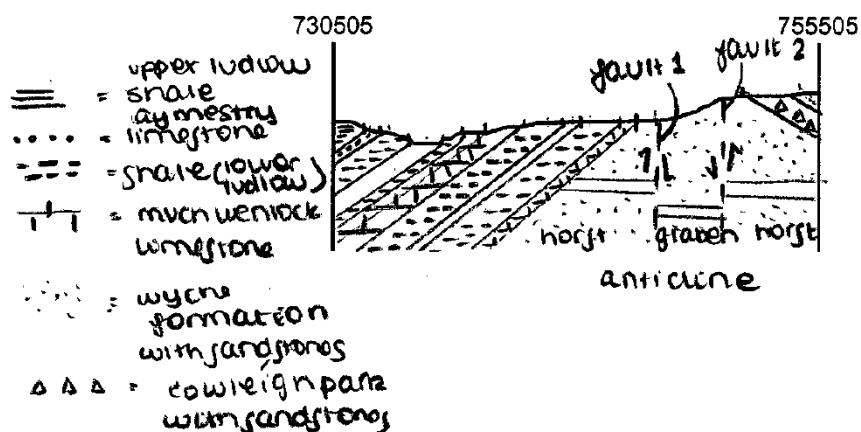 730505
755505
fault 1
fault 2
upper ludlow
= shale
aymestry
= limestone
= shale (lower
ludlow)
= much wenlock
limestone
= wyche
formation
with sandstones
= cowleigh park
with sandstones
horst
graben
horst
anticline